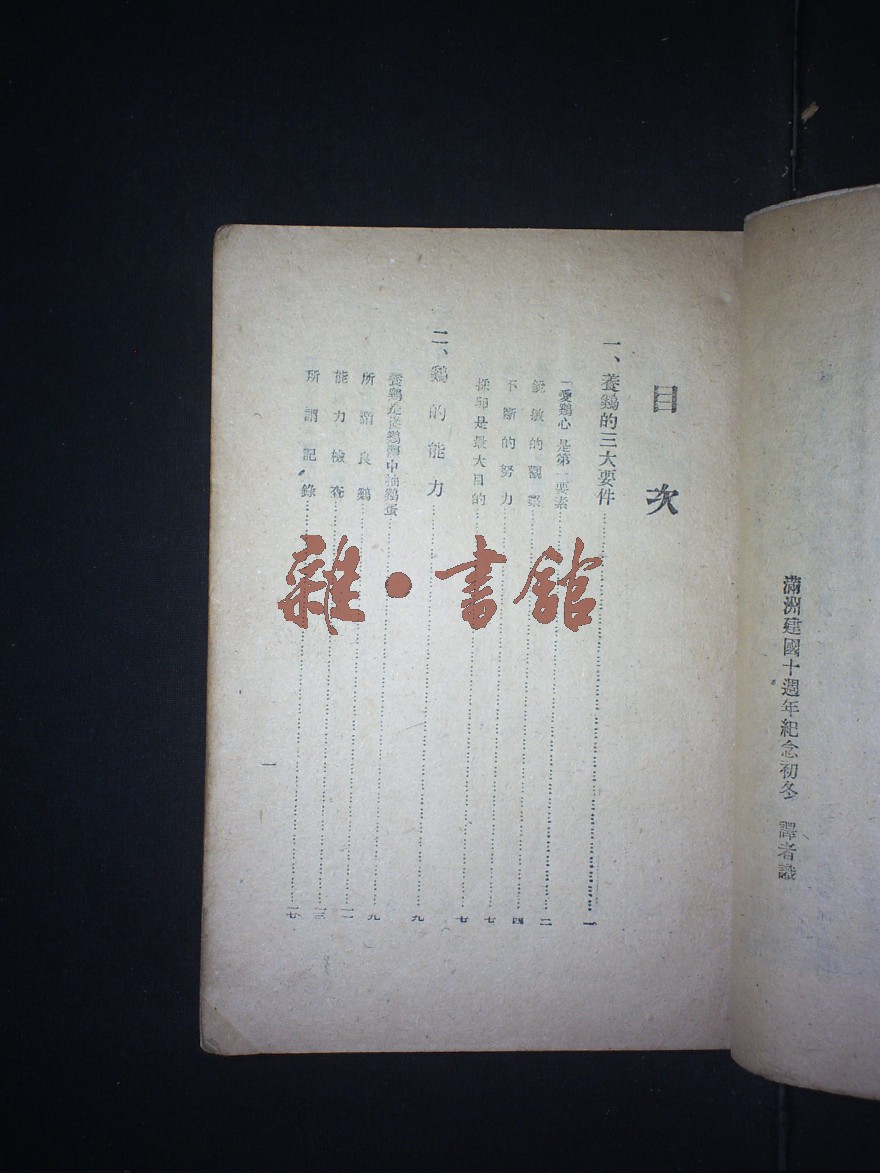 滿洲建國十週年紀念初冬 譯者識
目次
一、養鷄的三大要件……一
「愛鷄心」是第一要素……二
銳敏的觀察……四
不斷的努力……七
採卵是最大目的……七
二、鷄的能力……九
養鷄是從鷄 中抽鷄蛋……九
所謂良鷄……一一
能力檢查……一三
所謂記錄……一七
一
雜·書館